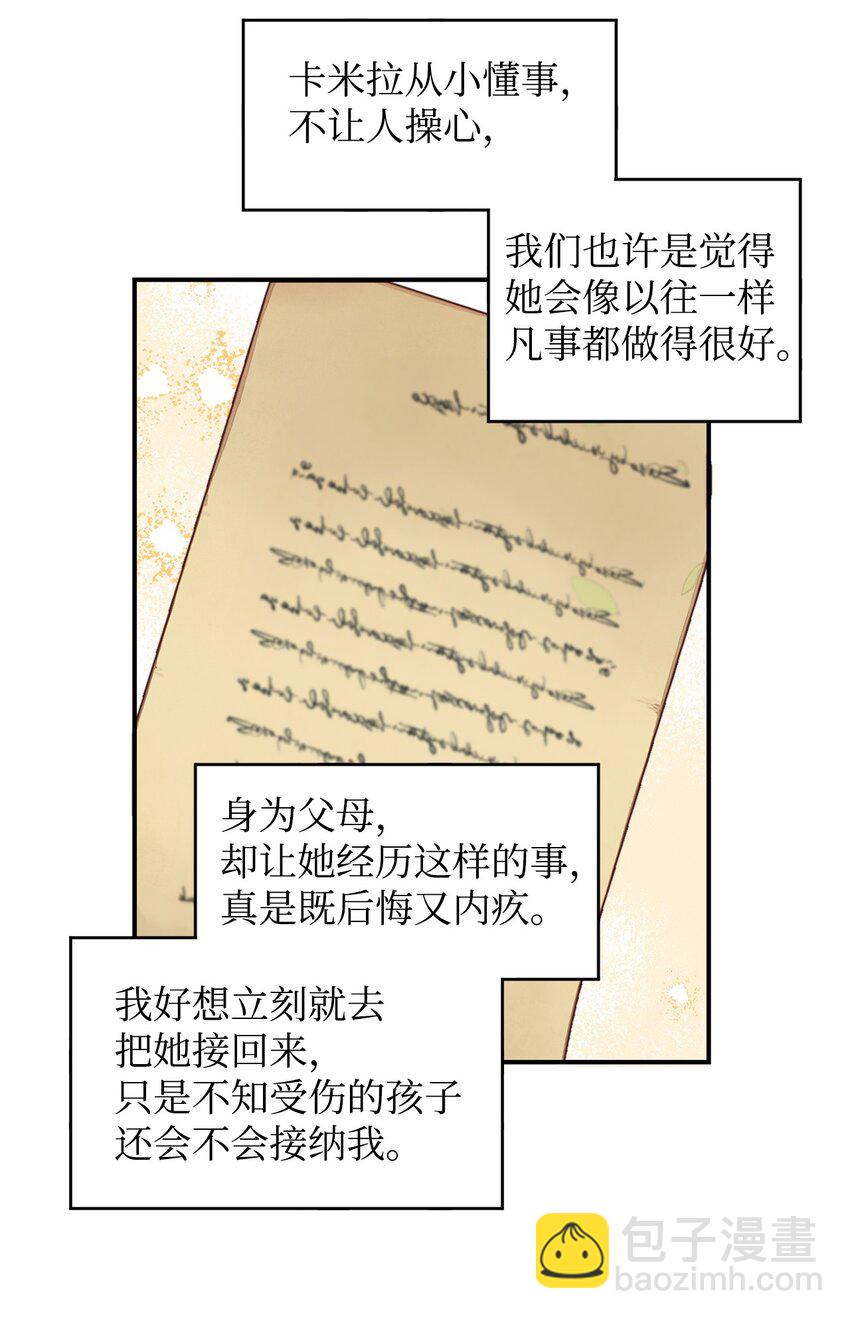 卡米拉从小懂事，
不让人操心，
我们也许是觉得
她会像以往一样
凡事都做得很好。
身为父母，
却让她经历这样的事，
真是既后悔又内疚。
我好想立刻就去
把她接回来，
只是不知受伤的孩子
还会不会接纳我。
包子漫畫
baozimh.com